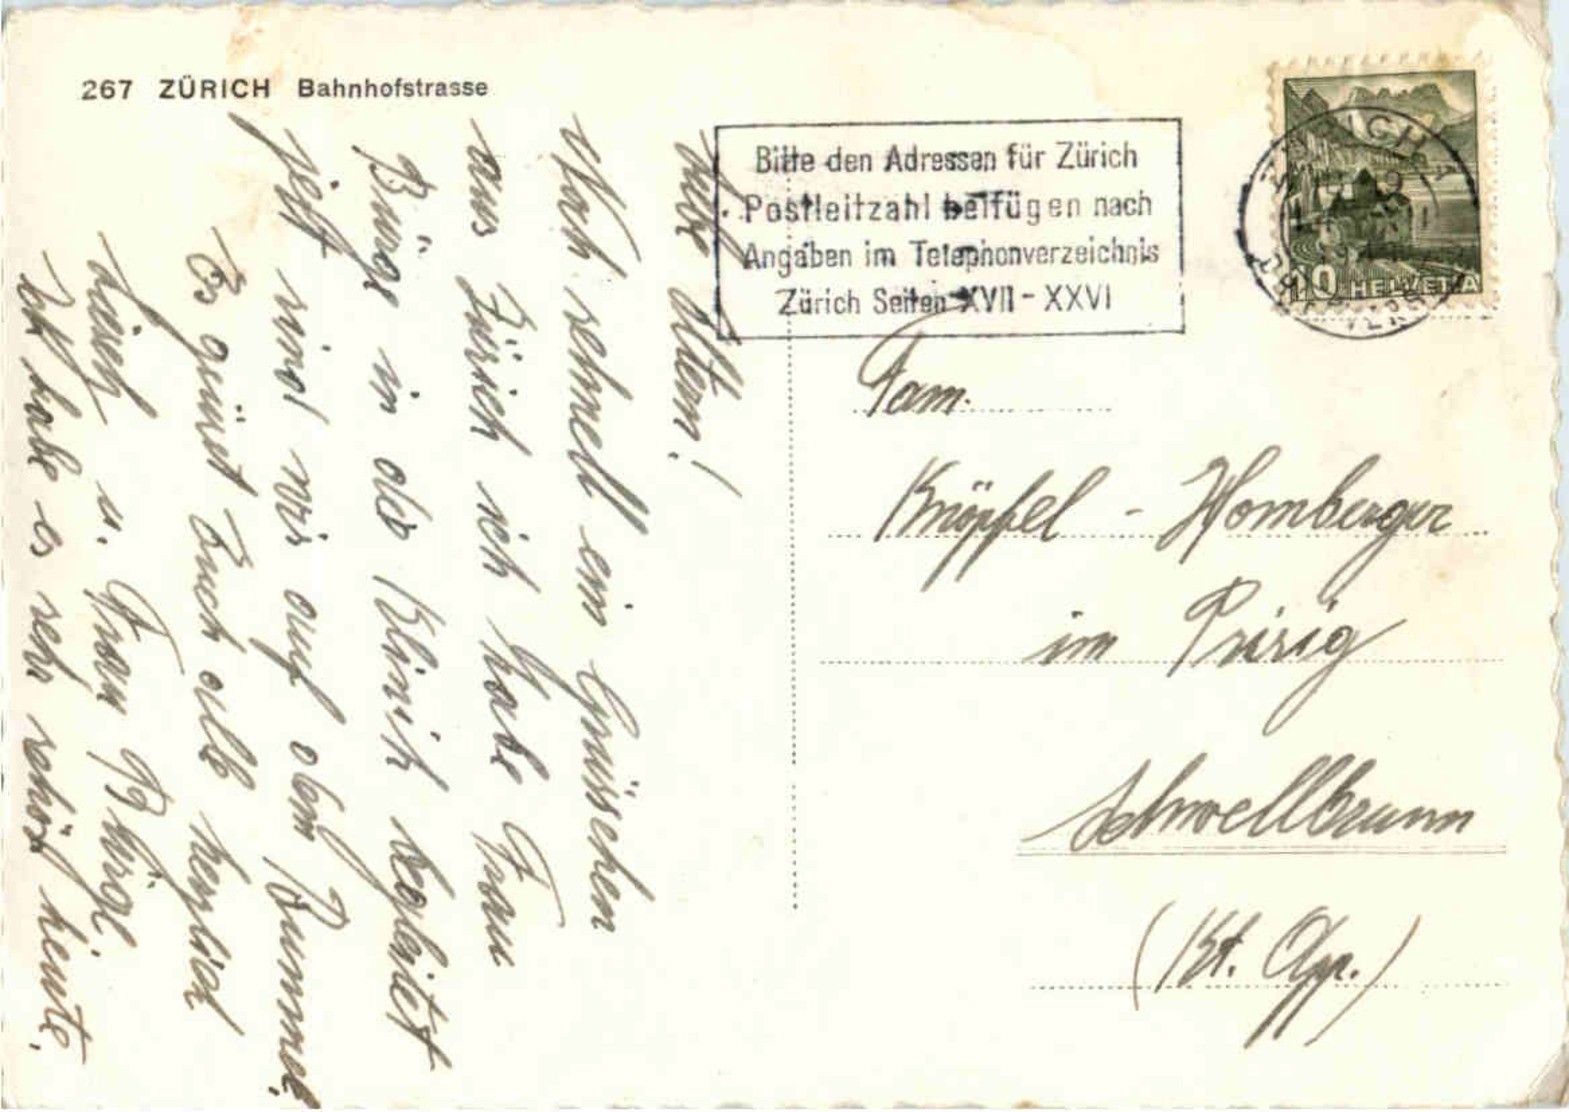 267 ZÜRICH Bahnhofstrasse
Bitte den Adressen für Zürich
Postleitzahl beifügen nach
Angaben im Telephonverzeichnis
Zürich Seiten XVII - XXVI
10 HELVETIA
Liebe Eltern!
Noch schnell ein Grüsschen
aus Zürich ich habe Frau
Bürge in die Klinik begleitet
jetzt sind wir auf dem Bummel.
Es grüsst Euch alle herzlich
u. Frau Bürge
Ich habe es sehr schön heute.
Fam.
Knöpfel - Homberger
im
Schwellbrunn
(Kt. App.)